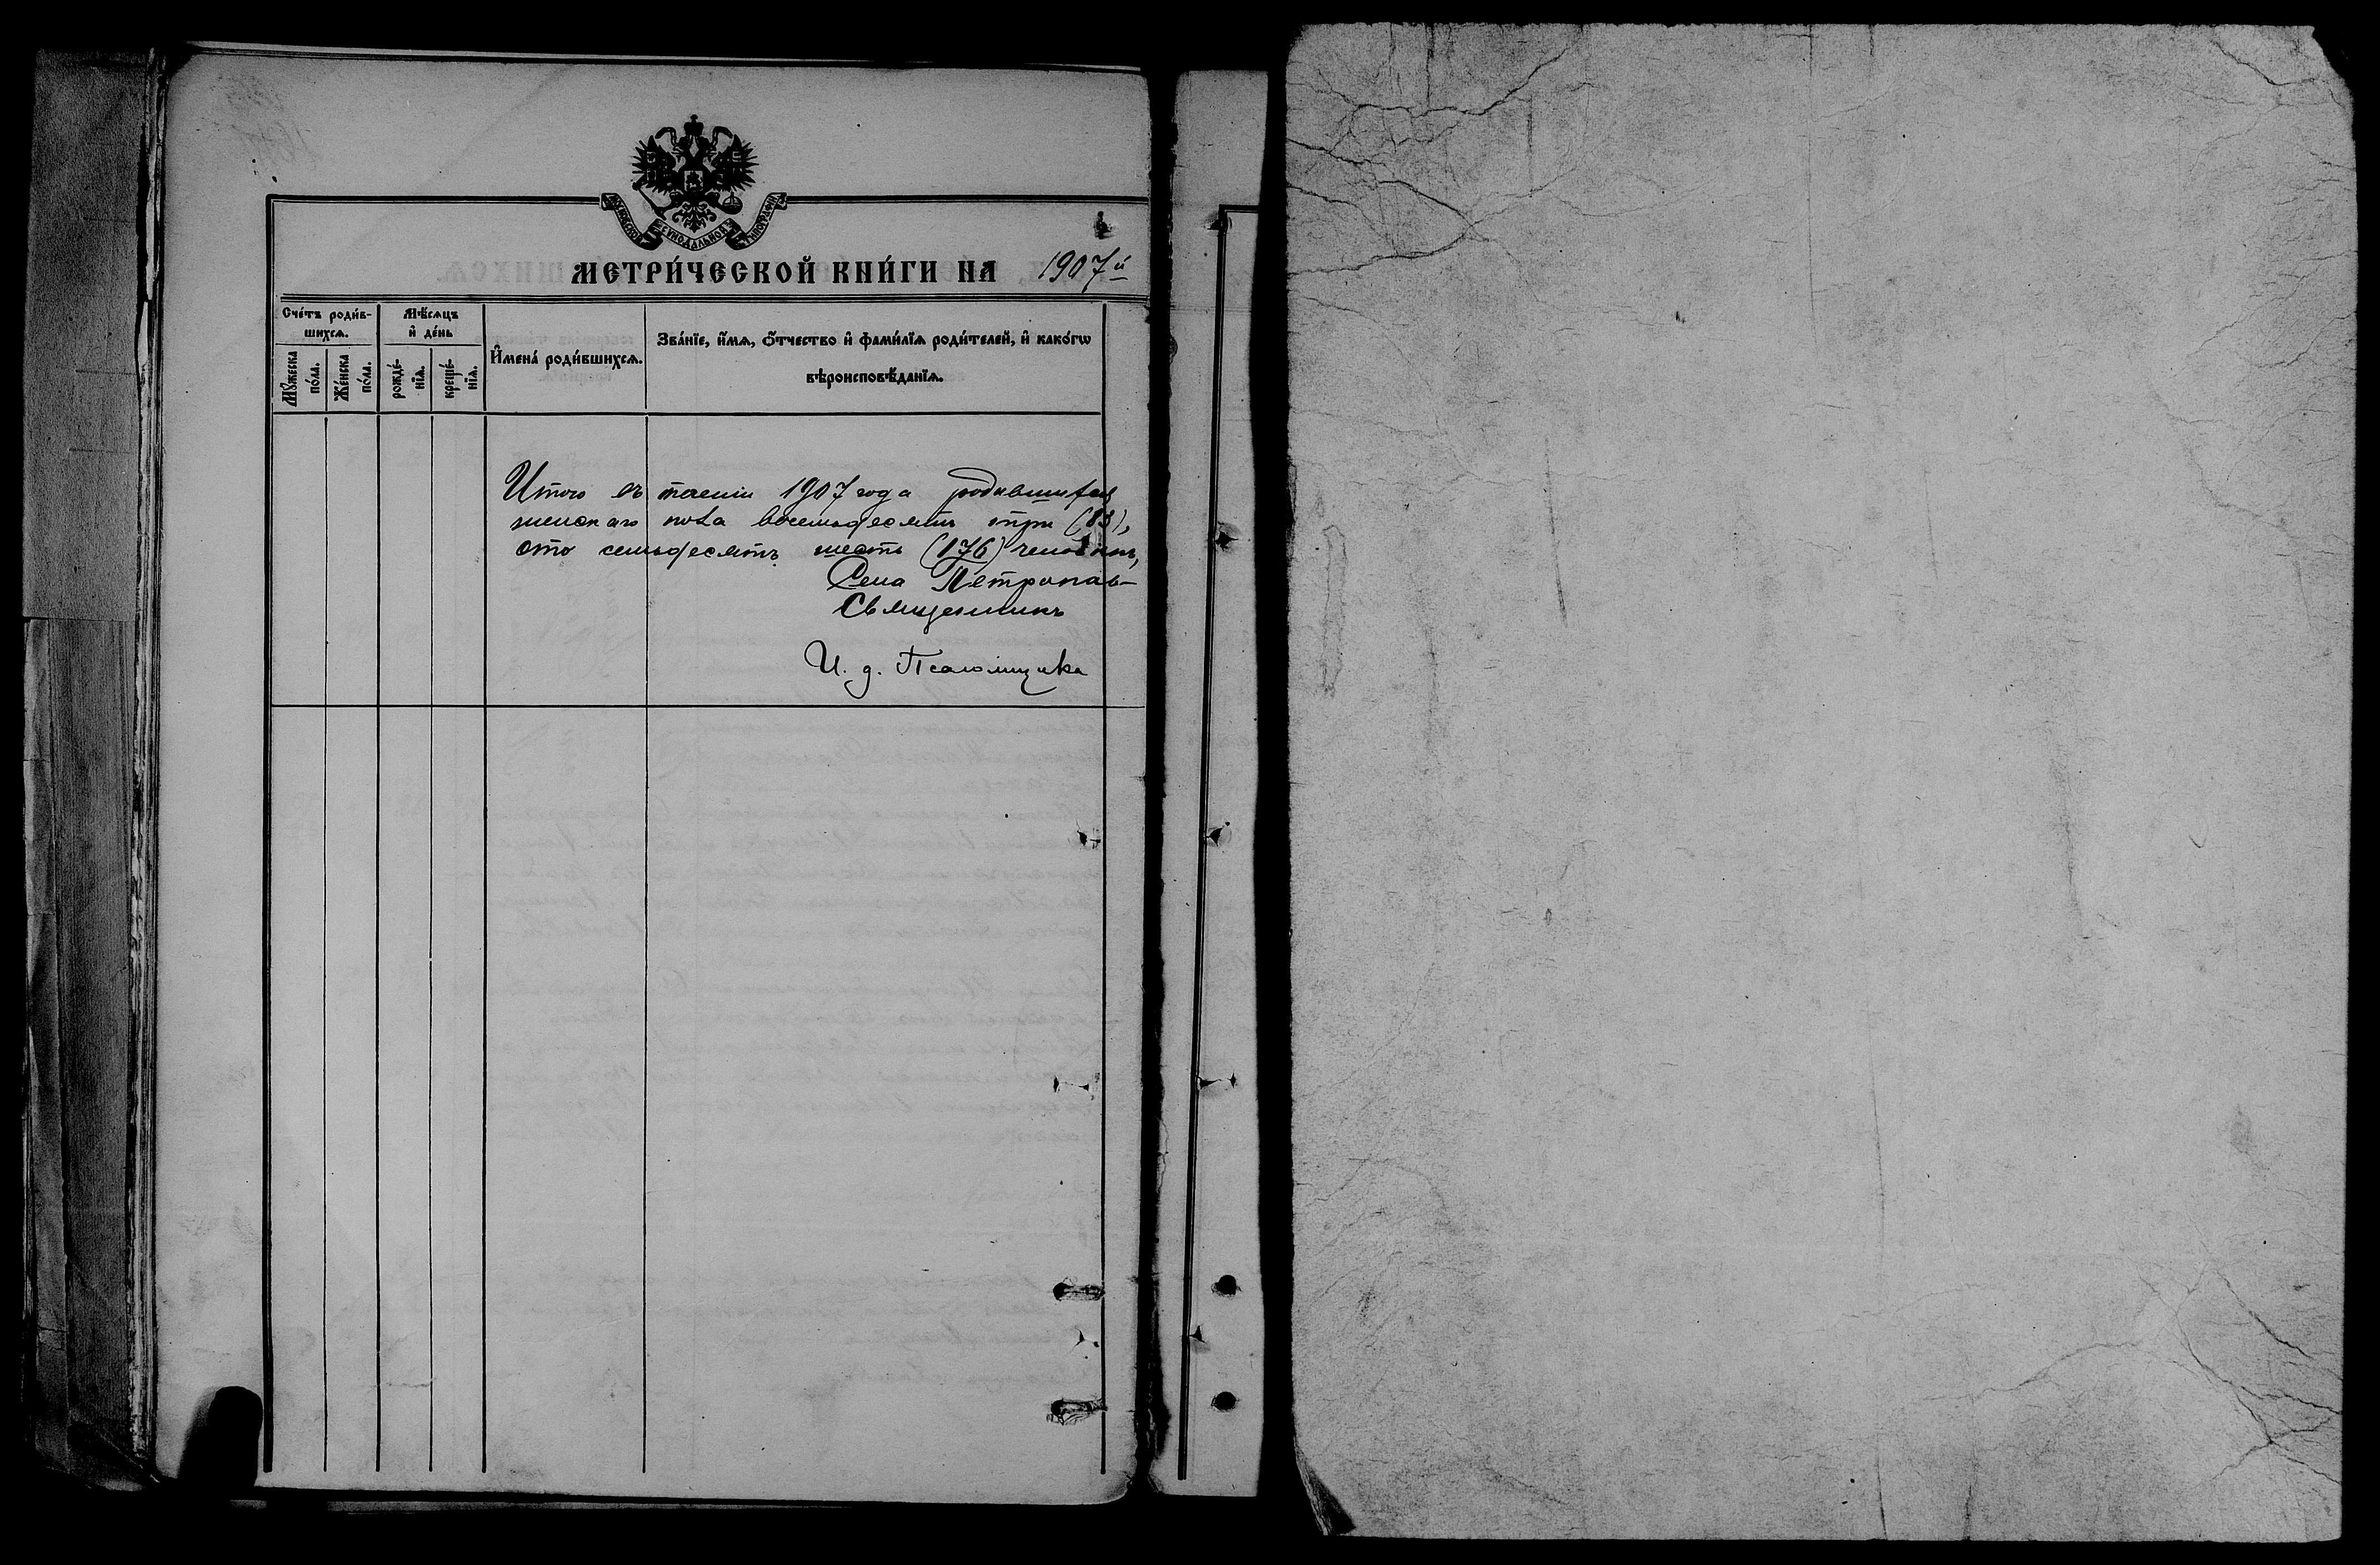 МОСКОВСКОЙ СѴНОДАЛЬНОЙ ТИПОГРАФІИ
МЕТРИ́ЧЕСКОЙ КНИ́ГИ НА 1907й
Сче́тъ роди́в-
шихсѧ.
Мꙋ́жеска
по́ла.
Же́нска
по́ла.
Мѣ́сѧцъ
и҆ де́нь
рожде́-
нїѧ.
креще́-
нїѧ.
И҆мена̀ роди́вшихсѧ.
Зва́нїе, и҆́мѧ, ѻ҆́тчество и҆ фами́лїѧ роди́телей, и҆ како́гѡ
вѣроисповѣ́данїѧ.
Итого въ теченіи 1907 года родившихся
женскаго пола восемьдесятъ три (83),
сто семьдесятъ шесть (176) человѣкъ,
Села Петропав-
Священникъ
И. д. Псаломщика